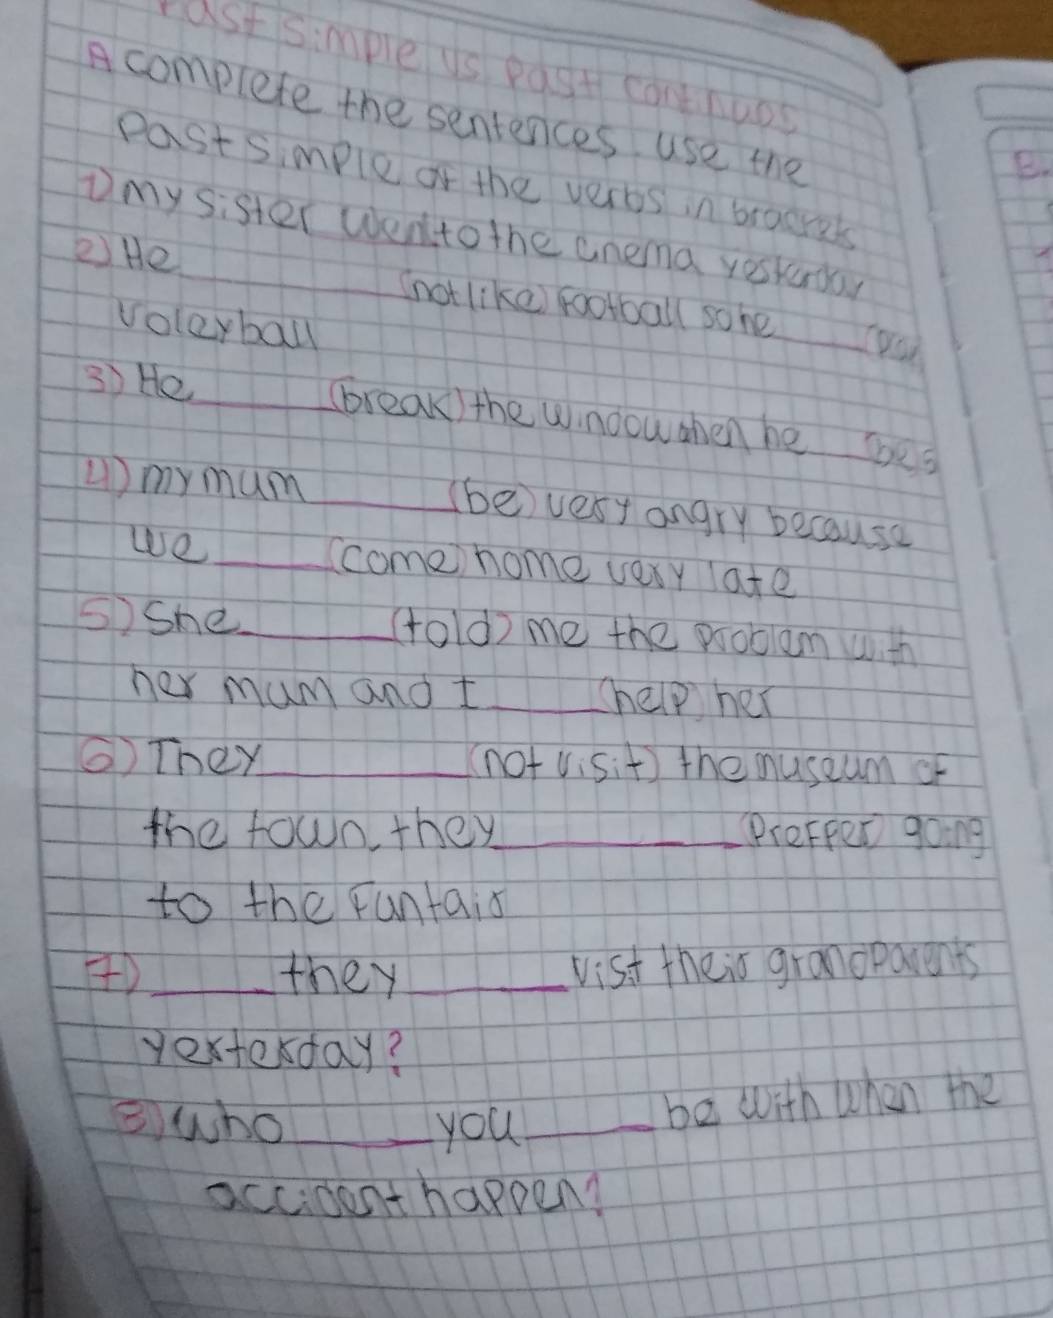 Past simple vs past continuos
A complete the sentences. use the
past simple of the verbs in brackets
1) my sister went to the cinema yesterday
2) He ______ (not like) football so he ____ (play
voleyball
3) He ____ (break) the window when he ____
4) my mum ______ (be) very angry because
we ____ (come) home very late
5) She ______ (told) me the problem with
her mum and I ____ (help) her
6) They ________ (not visit) the museum of
the town, they ________ (preffer) going
to the funfair
7) _____ they ______ visit their grandparents
yesterday?
8) who _____ you _____ be with when the
accident happen?
B.